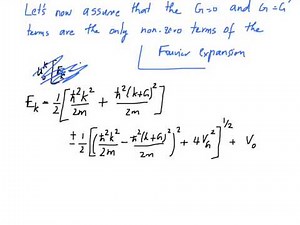 Let's now assume that the G=0 and G=G'
terms are the only non-zero terms of the
Fourier expansion
E_k = 1/2 [ ħ²k²/2m + ħ²(k+G)²/2m ]
± 1/2 [ ( ħ²k²/2m - ħ²(k+G)²/2m )² + 4V_G² ]^{1/2} + V_0